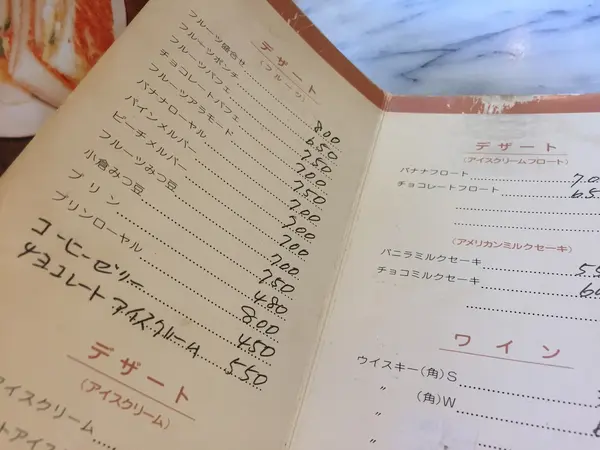 デザート
(フルーツ)
フルーツ盛合せ 800
フルーツポンチ 650
フルーツパフェ 750
チョコレートパフェ 700
フルーツアラモード 750
バナナローヤル 700
パインメルバー 700
ピーチメルバー 700
フルーツみつ豆 700
小倉みつ豆 750
プリン 480
プリンローヤル 800
コーヒーゼリー 450
チョコレートアイスクリーム 550
デザート
(アイスクリーム)
アイスクリーム
デザート
(アイスクリームフロート)
バナナフロート 70
チョコレートフロート 65
(アメリカンミルクセーキ)
バニラミルクセーキ 5
チョコミルクセーキ 6
ワイン
ウイスキー(角)S
〃 (角)W
〃
〃